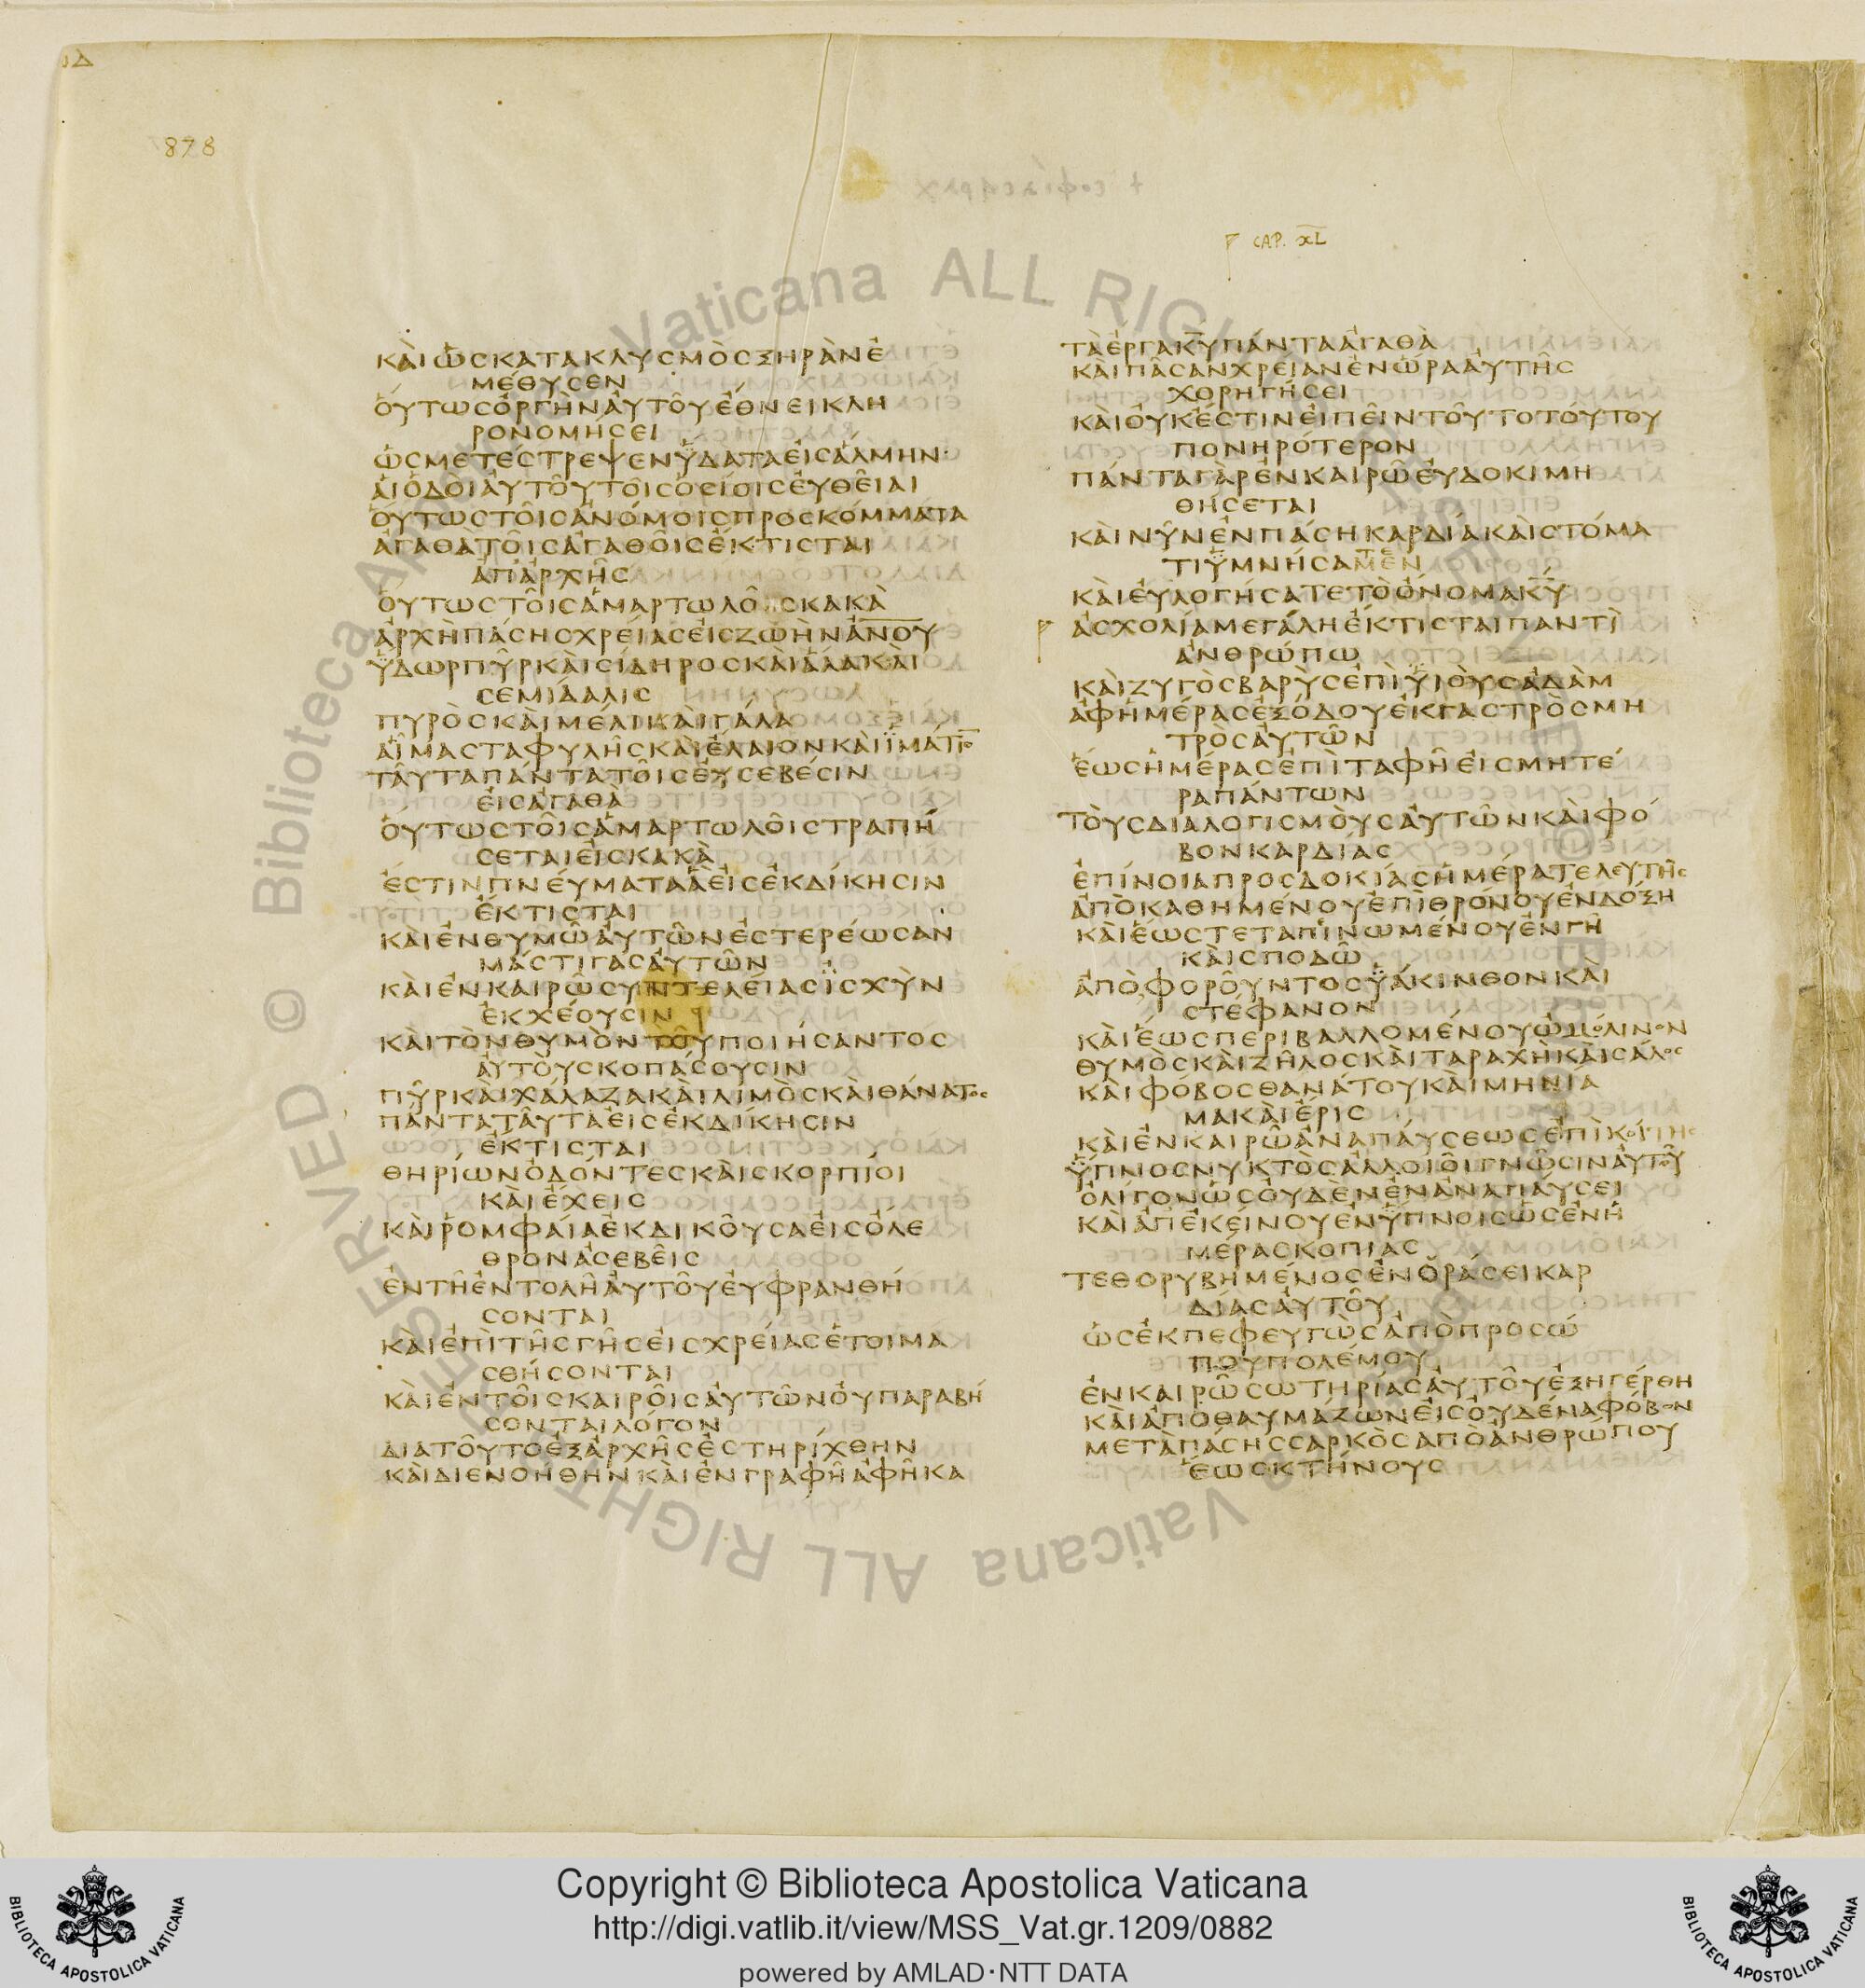 878
CAP. XL
ΚΑὶ ὡΣ ΚΑΤΑΚΛΥΣΜὸΣ ΞΗΡὰΝ ἐ
ΜέΘΥΣΕΝ
ΟὕΤΩΣ ὀΡΓὴΝ ΑὐΤΟῦ ἔΘΝΕΙ ΚΛΗ
ΡΟΝΟΜήΣΕΙ
ὡΣ ΜΕΤέΣΤΡΕΨΕΝ ὕΔΑΤΑ ΕἰΣ ἅΛΜΗΝ
Αἱ ὁΔΟὶ ΑὐΤΟῦ ΤΟῖΣ ὁΣίΟΙΣ ΕὐΘΕῖΑΙ
ΟὕΤΩΣ ΤΟῖΣ ἀΝόΜΟΙΣ ΠΡΟΣΚόΜΜΑΤΑ
ἀΓΑΘὰ ΤΟῖΣ ἀΓΑΘΟῖΣ ἔΚΤΙΣΤΑΙ
ἀΠ ἀΡΧῆΣ
ΟὕΤΩΣ ΤΟῖΣ ἁΜΑΡΤΩΛΟῖΣ ΚΑΚὰ
ἀΡΧὴ ΠάΣΗΣ ΧΡΕίΑΣ ΕἰΣ ΖΩὴΝ ἀΝΟΥ
ὕΔΩΡ ΠῦΡ ΚΑὶ ΣίΔΗΡΟΣ ΚΑὶ ἅΛΑ ΚΑὶ
ΣΕΜίΔΑΛΙΣ
ΠΥΡΟῦΣ ΚΑὶ ΜέΛΙ ΚΑὶ ΓάΛΑ
ΑἷΜΑ ΣΤΑΦΥΛῆΣ ΚΑὶ ἔΛΑΙΟΝ ΚΑὶ ἱΜάΤΙΟ
ΤΑῦΤΑ ΠάΝΤΑ ΤΟῖΣ ΕὐΣΕΒέΣΙΝ
ΕἰΣ ἀΓΑΘὰ
ΟὕΤΩΣ ΤΟῖΣ ἁΜΑΡΤΩΛΟῖΣ ΤΡΑΠή
ΣΕΤΑΙ ΕἰΣ ΚΑΚὰ
ἔΣΤΙΝ ΠΝΕύΜΑΤΑ ἃ ΕἰΣ ἐΚΔίΚΗΣΙΝ
ἔΚΤΙΣΤΑΙ
ΚΑὶ ἐΝ ΘΥΜῶ ΑὐΤῶΝ ἐΣΤΕΡέΩΣΑΝ
ΜάΣΤΙΓΑΣ ΑὐΤῶΝ
ΚΑὶ ἐΝ ΚΑΙΡῶ ΣΥΝΤΕΛΕίΑΣ ἰΣΧὺΝ
ἐΚΧέΟΥΣΙΝ
ΚΑὶ ΤὸΝ ΘΥΜὸΝ ΤΟῦ ΠΟΙήΣΑΝΤΟΣ
ΑὐΤΟὺΣ ΚΟΠάΣΟΥΣΙΝ
ΠῦΡ ΚΑὶ ΧάΛΑΖΑ ΚΑὶ ΛΙΜὸΣ ΚΑὶ ΘάΝΑΤΟΣ
ΠάΝΤΑ ΤΑῦΤΑ ΕἰΣ ἐΚΔίΚΗΣΙΝ
ἔΚΤΙΣΤΑΙ
ΘΗΡίΩΝ ὀΔόΝΤΕΣ ΚΑὶ ΣΚΟΡΠίΟΙ
ΚΑὶ ἔΧΕΙΣ
ΚΑὶ ῥΟΜΦΑίΑ ἐΚΔΙΚΟῦΣΑ ΕἰΣ ὄΛΕ
ΘΡΟΝ ἀΣΕΒΕῖΣ
ἐΝ Τῆ ἐΝΤΟΛῆ ΑὐΤΟῦ ΕὐΦΡΑΝΘή
ΣΟΝΤΑΙ
ΚΑὶ ἐΠὶ ΤῆΣ ΓῆΣ ΕἰΣ ΧΡΕίΑΣ ἑΤΟΙΜΑ
ΣΘήΣΟΝΤΑΙ
ΚΑὶ ἐΝ ΤΟῖΣ ΚΑΙΡΟῖΣ ΑὐΤῶΝ Οὐ ΠΑΡΑΒή
ΣΟΝΤΑΙ ΛόΓΟΝ
ΔΙΑ ΤΟῦΤΟ ἐΞ ἀΡΧῆΣ ἐΣΤΗΡίΧΘΗΝ
ΚΑὶ ΔΙΕΝΟήΘΗΝ ΚΑὶ ἐΝ ΓΡΑΦῆ ἀΦῆΚΑ
Τὰ ἔΡΓΑ ΚΥ ΠάΝΤΑ ἀΓΑΘὰ
ΚΑὶ ΠᾶΣΑΝ ΧΡΕίΑΝ ἐΝ ὥΡΑ ΑὐΤῆΣ
ΧΟΡΗΓήΣΕΙ
ΚΑὶ ΟὐΚ ἔΣΤΙΝ ΕἰΠΕῖΝ ΤΟῦΤΟ ΤΟύΤΟΥ
ΠΟΝΗΡόΤΕΡΟΝ
ΠάΝΤΑ ΓὰΡ ἐΝ ΚΑΙΡῶ ΕὐΔΟΚΙΜΗ
ΘήΣΕΤΑΙ
ΚΑὶ ΝῦΝ ἐΝ ΠάΣΗ ΚΑΡΔίΑ ΚΑὶ ΣΤόΜΑ
ΤΙ ὑΜΝήΣΑΤΕ
ΚΑὶ ΕὐΛΟΓήΣΑΤΕ Τὸ ὄΝΟΜΑ ΚΥ
ἀΣΧΟΛίΑ ΜΕΓάΛΗ ἔΚΤΙΣΤΑΙ ΠΑΝΤὶ
ἀΝΘΡώΠΩ
ΚΑὶ ΖΥΓὸΣ ΒΑΡὺΣ ἐΠὶ ΥἱΟὺΣ ἀΔὰΜ
ἀΦ ἡΜέΡΑΣ ἐΞόΔΟΥ ἐΚ ΓΑΣΤΡὸΣ ΜΗ
ΤΡὸΣ ΑὐΤῶΝ
ἕΩΣ ἡΜέΡΑΣ ἐΠὶ ΤΑΦῆ ΕἰΣ ΜΗΤέ
ΡΑ ΠάΝΤΩΝ
ΤΟὺΣ ΔΙΑΛΟΓΙΣΜΟὺΣ ΑὐΤῶΝ ΚΑὶ Φό
ΒΟΝ ΚΑΡΔίΑΣ
ἐΠίΝΟΙΑ ΠΡΟΣΔΟΚίΑΣ ἡΜέΡΑ ΤΕΛΕΥΤῆΣ
ἀΠὸ ΚΑΘΗΜέΝΟΥ ἐΠὶ ΘΡόΝΟΥ ἐΝΔόΞΗ
ΚΑὶ ἕΩΣ ΤΕΤΑΠΙΝΩΜέΝΟΥ ἐΝ Γῆ
ΚΑὶ ΣΠΟΔῶ
ἀΠὸ ΦΟΡΟῦΝΤΟΣ ὑάΚΙΝΘΟΝ ΚΑὶ
ΣΤέΦΑΝΟΝ
ΚΑὶ ἕΩΣ ΠΕΡΙΒΑΛΛΟΜέΝΟΥ ὠΜόΛΙΝΟΝ
ΘΥΜὸΣ ΚΑὶ ΖῆΛΟΣ ΚΑὶ ΤΑΡΑΧὴ ΚΑὶ ΣάΛΟΣ
ΚΑὶ ΦόΒΟΣ ΘΑΝάΤΟΥ ΚΑὶ ΜΗΝίΑ
ΜΑ ΚΑὶ ἔΡΙΣ
ΚΑὶ ἐΝ ΚΑΙΡῶ ἀΝΑΠΑύΣΕΩΣ ἐΠὶ ΚΟίΤΗΣ
ὕΠΝΟΣ ΝΥΚΤὸΣ ἀΛΛΟΙΟῖ ΓΝῶΣΙΝ ΑὐΤΟῦ
ὀΛίΓΟΝ ὡΣ ΟὐΔὲΝ ἐΝ ἀΝΑΠΑύΣΕΙ
ΚΑὶ ἀΠ ἐΚΕίΝΟΥ ἐΝ ὕΠΝΟΙΣ ὡΣ ἐΝ ἡ
ΜέΡΑ ΣΚΟΠΙᾶΣ
ΤΕΘΟΡΥΒΗΜέΝΟΣ ἐΝ ὁΡάΣΕΙ ΚΑΡ
ΔίΑΣ ΑὐΤΟῦ
ὡΣ ἐΚΠΕΦΕΥΓὼΣ ἀΠὸ ΠΡΟΣώ
ΠΟΥ ΠΟΛέΜΟΥ
ἐΝ ΚΑΙΡῶ ΣΩΤΗΡίΑΣ ΑὐΤΟῦ ἐΞΗΓέΡΘΗ
ΚΑὶ ἀΠΟΘΑΥΜάΖΩΝ ΕἰΣ ΟὐΔέΝΑ ΦόΒΟΝ
ΜΕΤὰ ΠάΣΗΣ ΣΑΡΚὸΣ ἀΠὸ ἀΝΘΡώΠΟΥ
ἕΩΣ ΚΤήΝΟΥΣ
© Biblioteca Apostolica Vaticana ALL RIGHTS RESERVED
Copyright © Biblioteca Apostolica Vaticana
http://digi.vatlib.it/view/MSS_Vat.gr.1209/0882
powered by AMLAD·NTT DATA
BIBLIOTECA APOSTOLICA VATICANA
BIBLIOTECA APOSTOLICA VATICANA